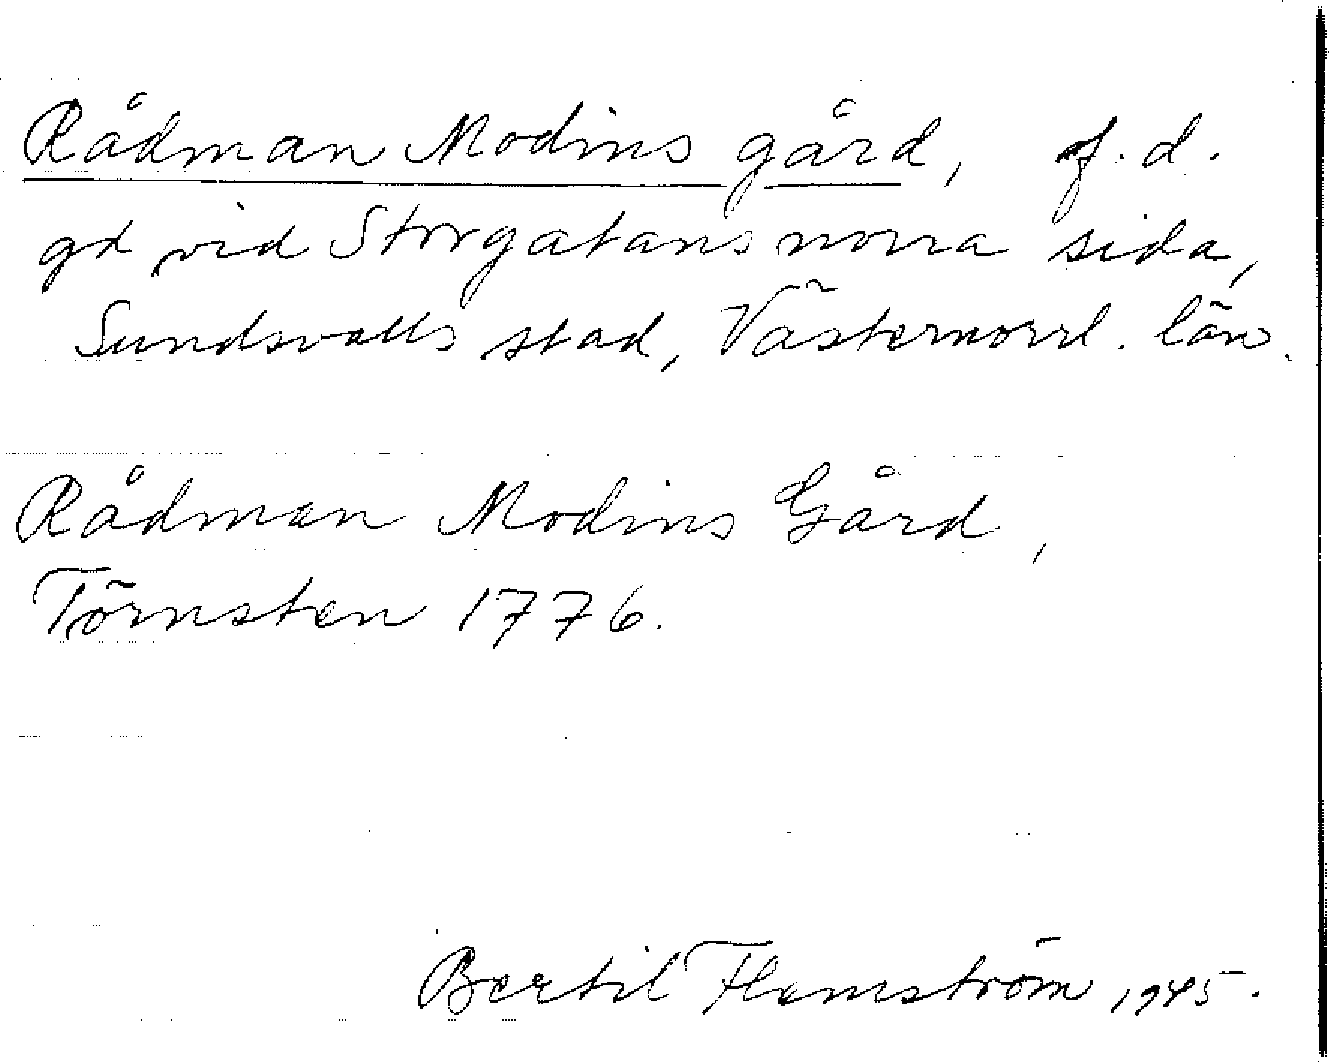 Rådman Modins gård, f.d.
gd vid Storgatans norra sida,
Sundsvalls stad, Västernorrl. län.
Rådman Modins Gård,
Törnsten 1776.
Bertil Flemström 1945.